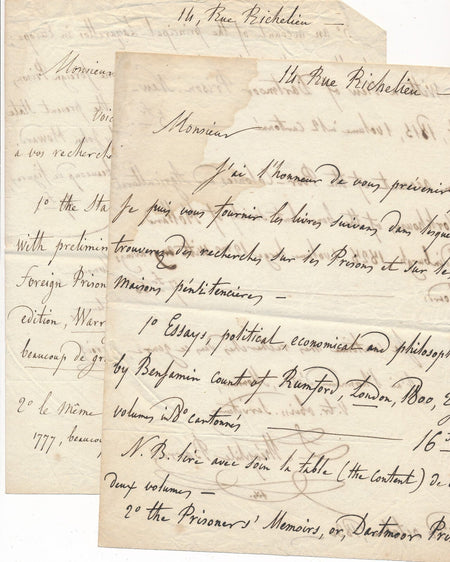 14, Rue Richelieu —
Monsieur
Voic
à vos recherche
1o the Sta
with prelimin
Foreign Prison
edition, Warr
beaucoup de gr
2o le Même
1777, beaucou
14 Rue Richelieu —
Monsieur
J'ai l'honneur de vous prévenir
Je puis vous fournir les livres suivans dans lesque
trouverez des recherches sur les Prisons et sur le
maisons pénitencières —
1o Essays, political, economical and philosoph
by Benjamin Count of Rumford, London, 1800, 2
volumes in 8o cartonnés — 16
N.B. lire avec soin la table (the content) de
deux volumes —
2o the Prisoners' Memoirs, or, Dartmoor Pri